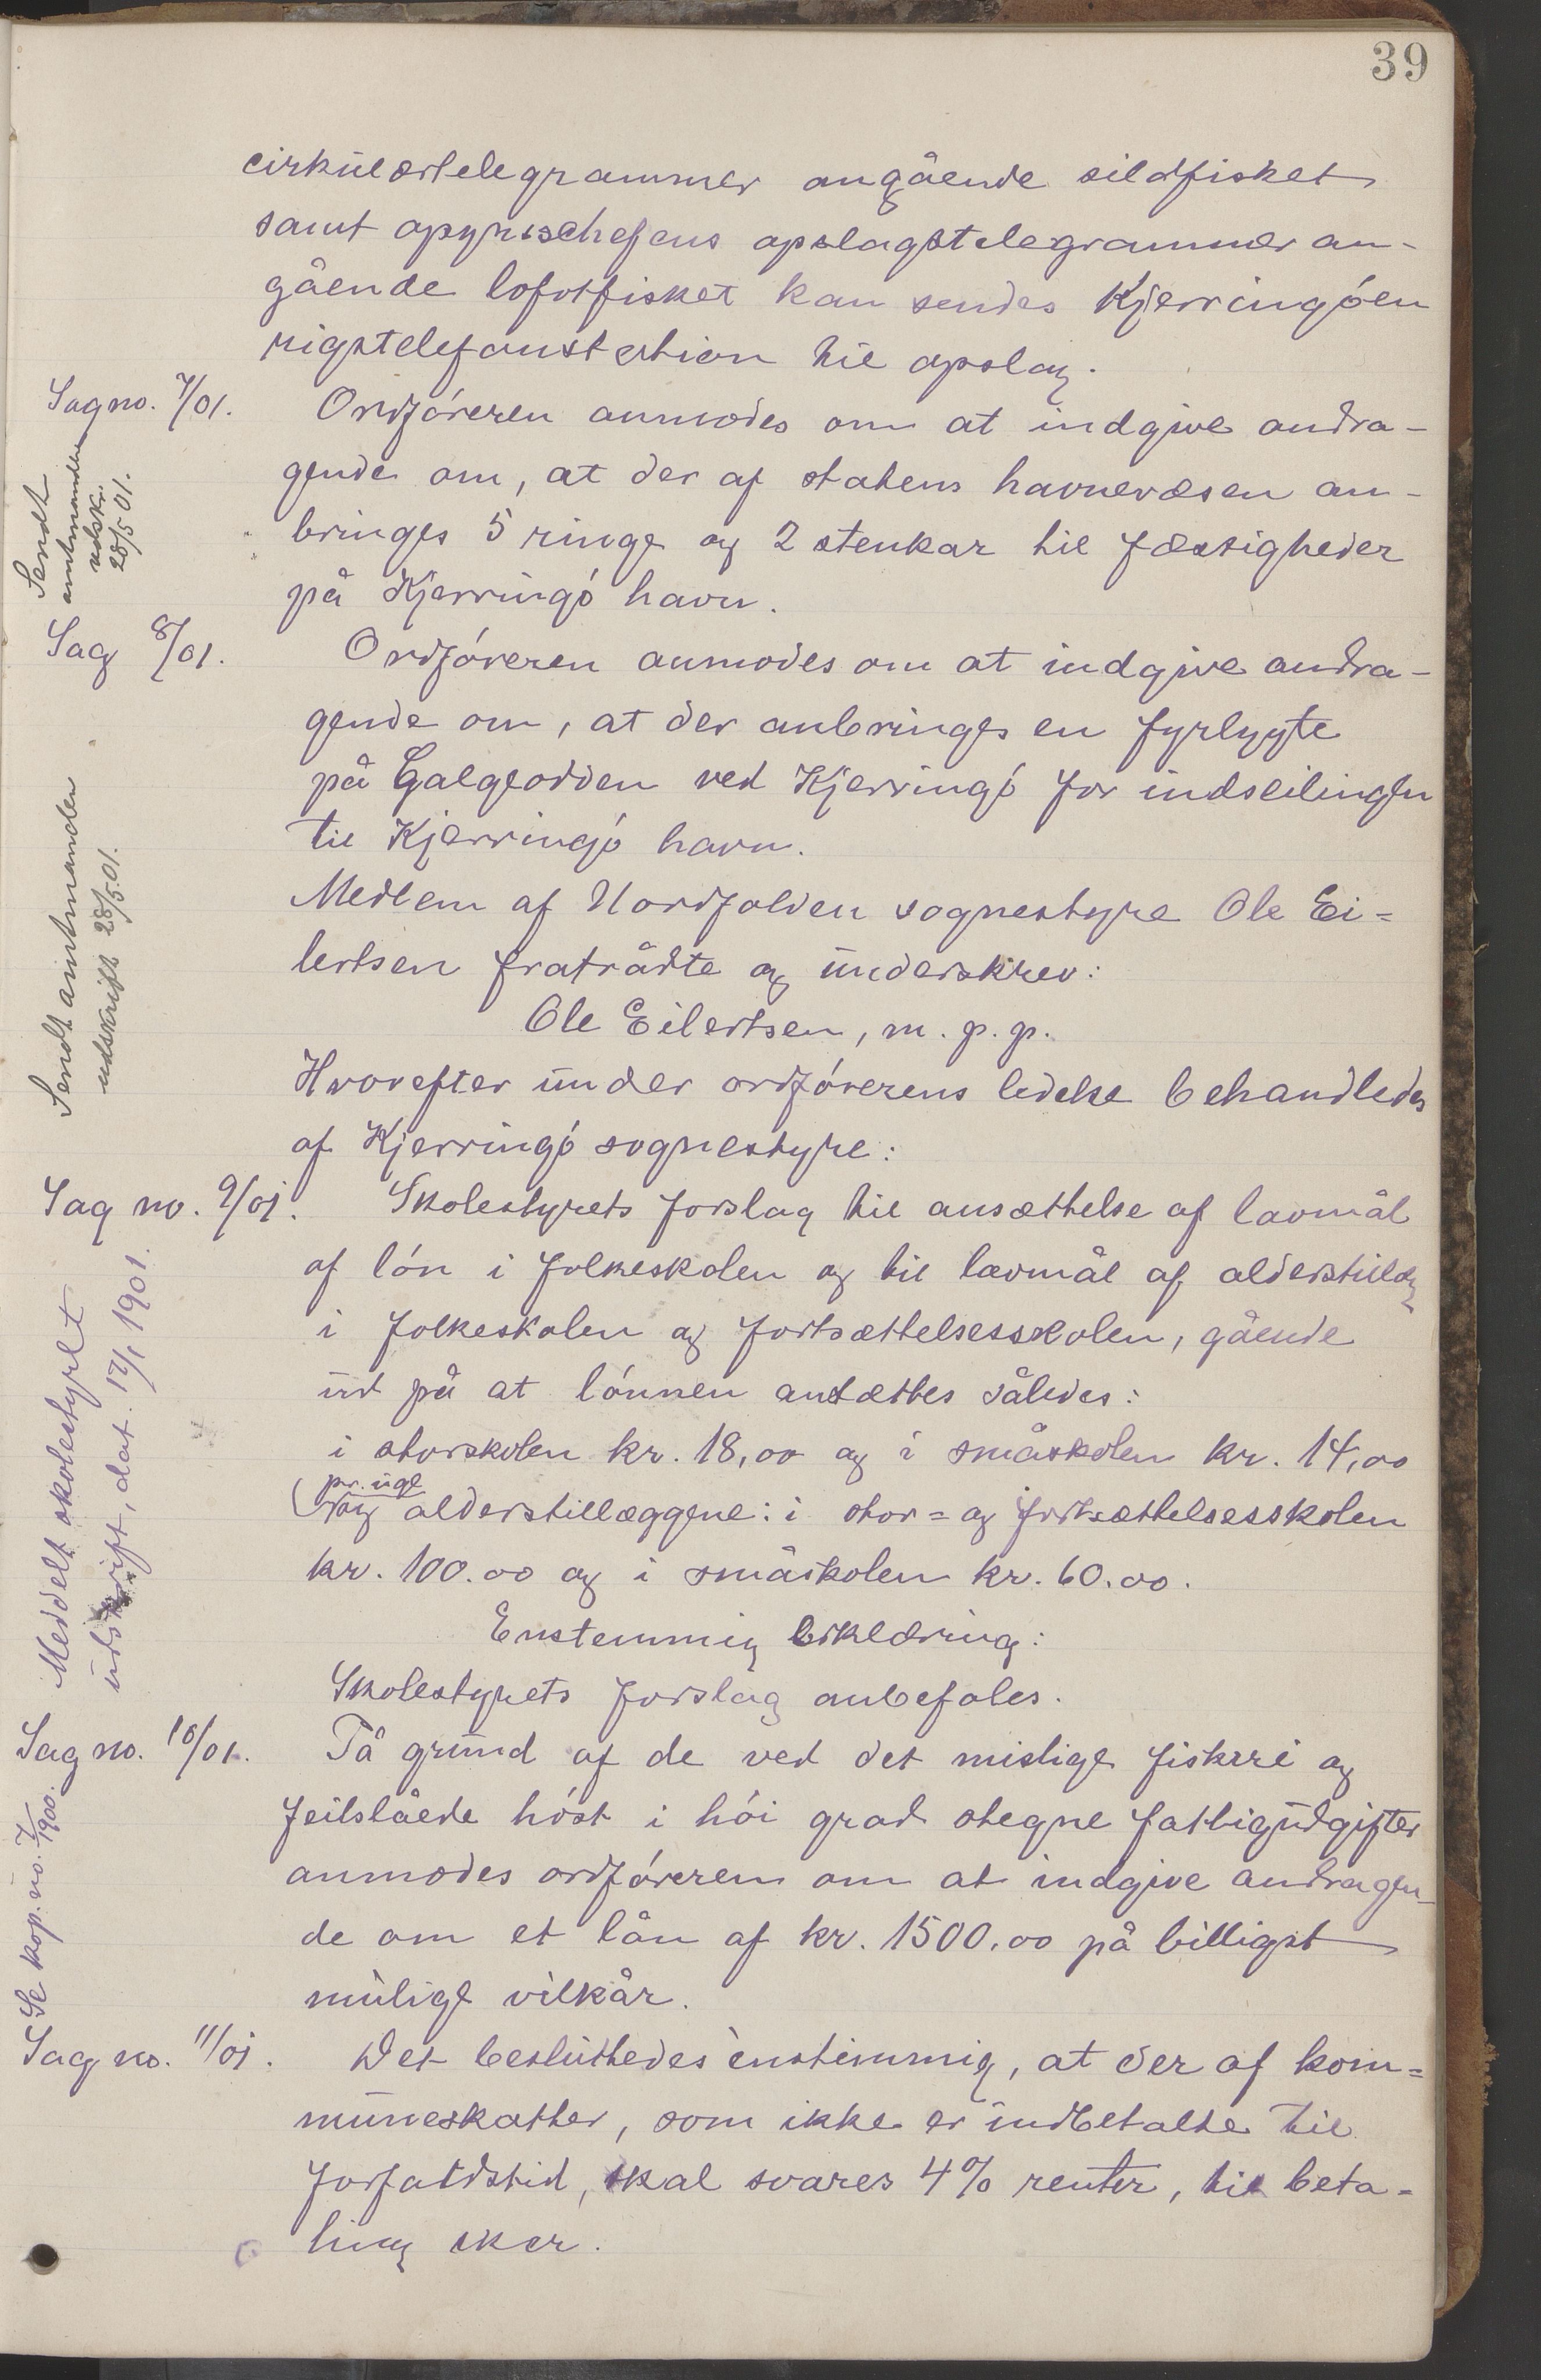 39
cirkulærtelegrammer angående sildfisket
samt opsynschefens opslagstelegrammer an-
gående lofotfisket kan sendes Kjerringöen
rigstelefonstation til opslag.
Sag no. 7/01.
Ordföreren anmodes om at indgive andra-
gende om, at der af statens havnevæsen an-
bringes 5 ringe og 2 stenkar til fæstigheder
på Kjerringö havn.
Sendt
amtmanden
udskr.
28/5 01.
Sag 8/01.
Ordföreren anmodes om at indgive andra-
gende om, at der anbringes en fyrlygte
på Galgeodden ved Kjerringö for indseilingen
til Kjerringö havn.
Sendt amtmanden
udskrift 28/5.01.
Medlem af Nordfolden sognestyre Ole Ei=
lertsen fratrådte og underskrev:
Ole Eilertsen, m. p. p.
Hvorefter under ordförerens ledelse behandledes
af Kjerringö sognestyre:
Sag no. 9/01.
Skolestyrets forslag til ansættelse af lavmål
af lön i folkeskolen og til lavmål af alderstillæg
i folkeskolen og fortsættelsesskolen, gående
ud på at lönnen ansættes således:
i storskolen kr. 18,00 og i småskolen kr. 14,00
pr. uge
og alderstillæggene: i stor= og fortsættelsesskolen
kr. 100.00 og i småskolen kr. 60.00.
Enstemmig erklæring:
Skolestyrets forslag anbefales.
Meddelt skolestyret
udskrift, dat. 17/1 1901.
Sag no. 10/01.
På grund af de ved det mislige fiskeri og
feilslåede höst i höi grad stegne fattigudgifter
anmodes ordföreren om at indgive andragen-
de om et lån af kr. 1500,00 på billigst
mulige vilkår.
Se kop. no. 7/1900.
Sag no. 11/01.
Det besluttedes enstemmig, at der af kom=
muneskatter, som ikke er indbetalte til
forfaldstid, skal svares 4% renter, til beta=
ling sker.